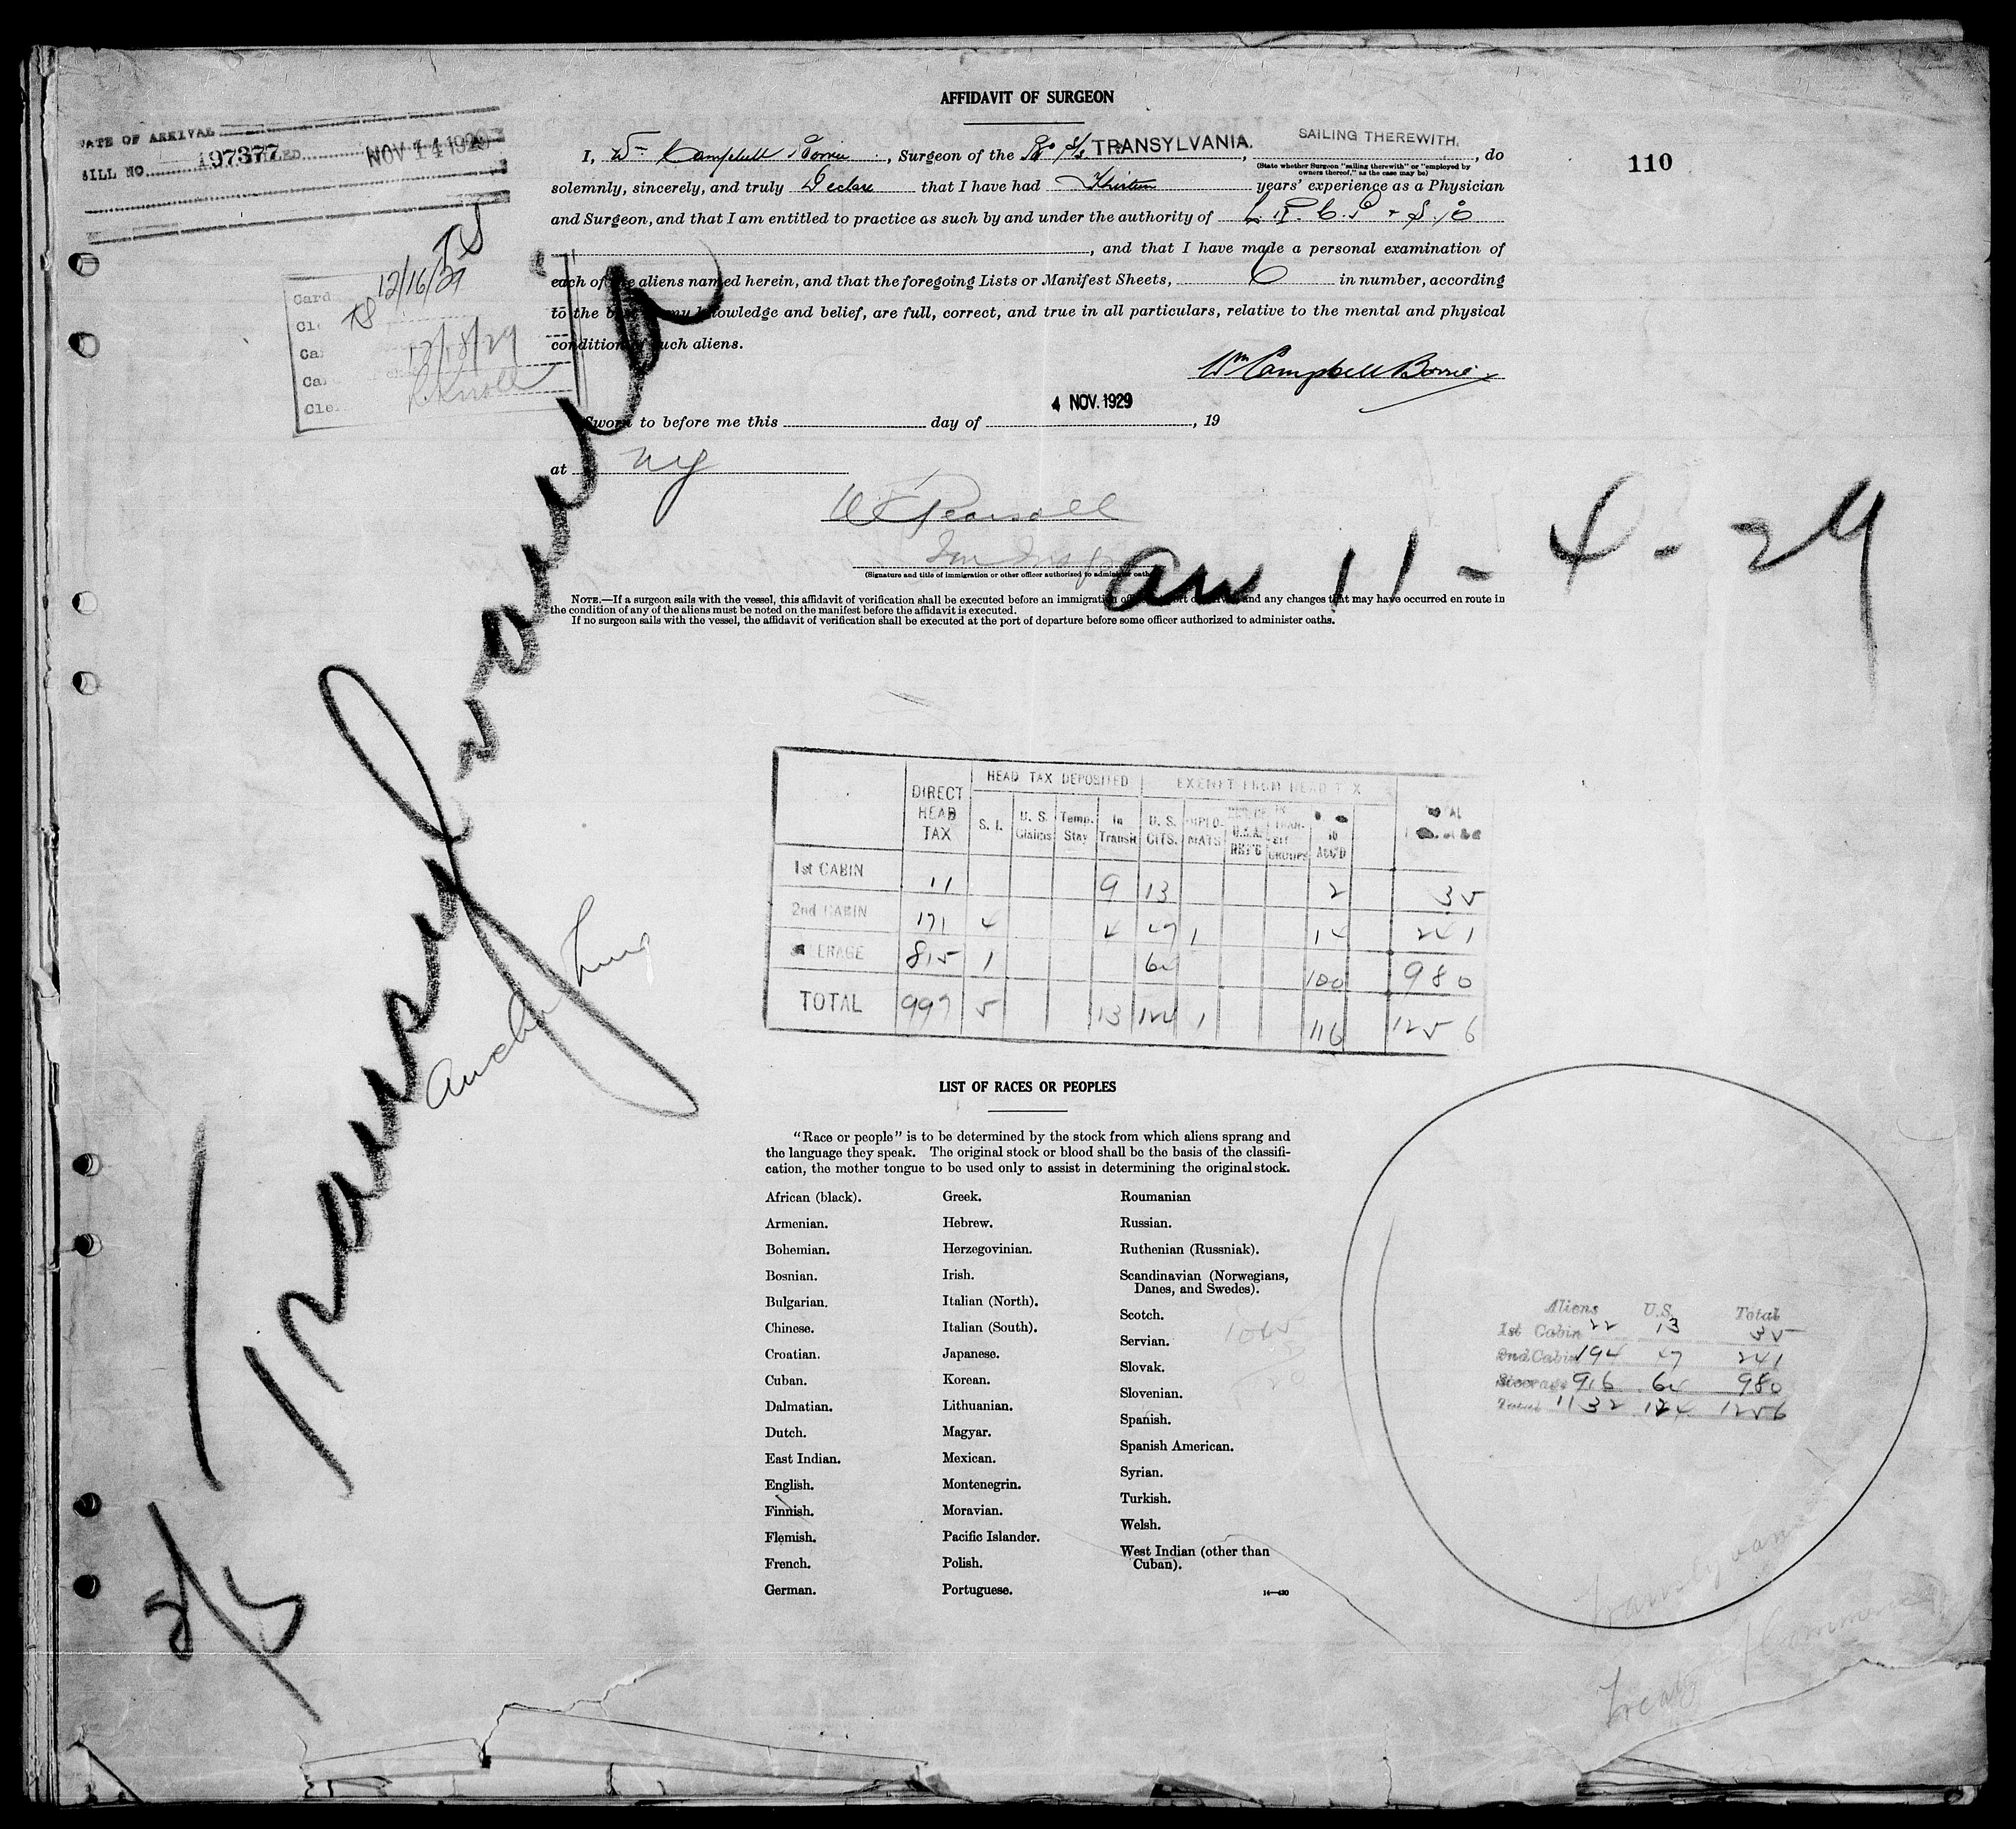 AFFIDAVIT OF SURGEON
DATE OF ARRIVAL
BILL NO. 197377 NOV 14 1929
110
I, Wm Campbell Borrie, Surgeon of the S/S TRANSYLVANIA. SAILING THEREWITH. , do
(State whether Surgeon "sailing therewith" or "employed by owners thereof," as the case may be)
solemnly, sincerely, and truly Declare that I have had Thirteen years' experience as a Physician
and Surgeon, and that I am entitled to practice as such by and under the authority of L.R.C.P. & S.
, and that I have made a personal examination of
each of the aliens named herein, and that the foregoing Lists or Manifest Sheets, 6 in number, according
to the best of my knowledge and belief, are full, correct, and true in all particulars, relative to the mental and physical
condition of such aliens.
Card
12/16/29
12/18/29
Wm Campbell Borrie
Sworn to before me this day of 4 NOV. 1929, 19
at NY
W Pearsall
Im Insp
(Signature and title of immigration or other officer authorized to administer oaths)
arr 11-4-29
NOTE.—If a surgeon sails with the vessel, this affidavit of verification shall be executed before an immigration officer at port of arrival and any changes that may have occurred en route in
the condition of any of the aliens must be noted on the manifest before the affidavit is executed.
If no surgeon sails with the vessel, the affidavit of verification shall be executed at the port of departure before some officer authorized to administer oaths.
S/S Transylvania
Anchor Line
HEAD TAX DEPOSITED EXEMPT FROM HEAD TAX
DIRECT HEAD TAX S. I. U. S. Claims Temp. Stay In Transit U. S. CITS. DIPLOMATS U.S.A. IN TRANSIT GROUPS ACC'D TOTAL
1st CABIN 11 9 13 2 35
2nd CABIN 171 4 4 47 1 14 241
STEERAGE 815 1 64 100 980
TOTAL 997 5 13 124 1 116 1256
LIST OF RACES OR PEOPLES
"Race or people" is to be determined by the stock from which aliens sprang and
the language they speak. The original stock or blood shall be the basis of the classifi-
cation, the mother tongue to be used only to assist in determining the original stock.
African (black).
Armenian.
Bohemian.
Bosnian.
Bulgarian.
Chinese.
Croatian.
Cuban.
Dalmatian.
Dutch.
East Indian.
English.
Finnish.
Flemish.
French.
German.
Greek.
Hebrew.
Herzegovinian.
Irish.
Italian (North).
Italian (South).
Japanese.
Korean.
Lithuanian.
Magyar.
Mexican.
Montenegrin.
Moravian.
Pacific Islander.
Polish.
Portuguese.
Roumanian
Russian.
Ruthenian (Russniak).
Scandinavian (Norwegians,
Danes, and Swedes).
Scotch.
Servian.
Slovak.
Slovenian.
Spanish.
Spanish American.
Syrian.
Turkish.
Welsh.
West Indian (other than
Cuban).
14—430
Aliens U.S. Total
1st Cabin 22 13 35
2nd Cabin 194 47 241
Steerage 916 64 980
Total 1132 124 1256
Transylvania